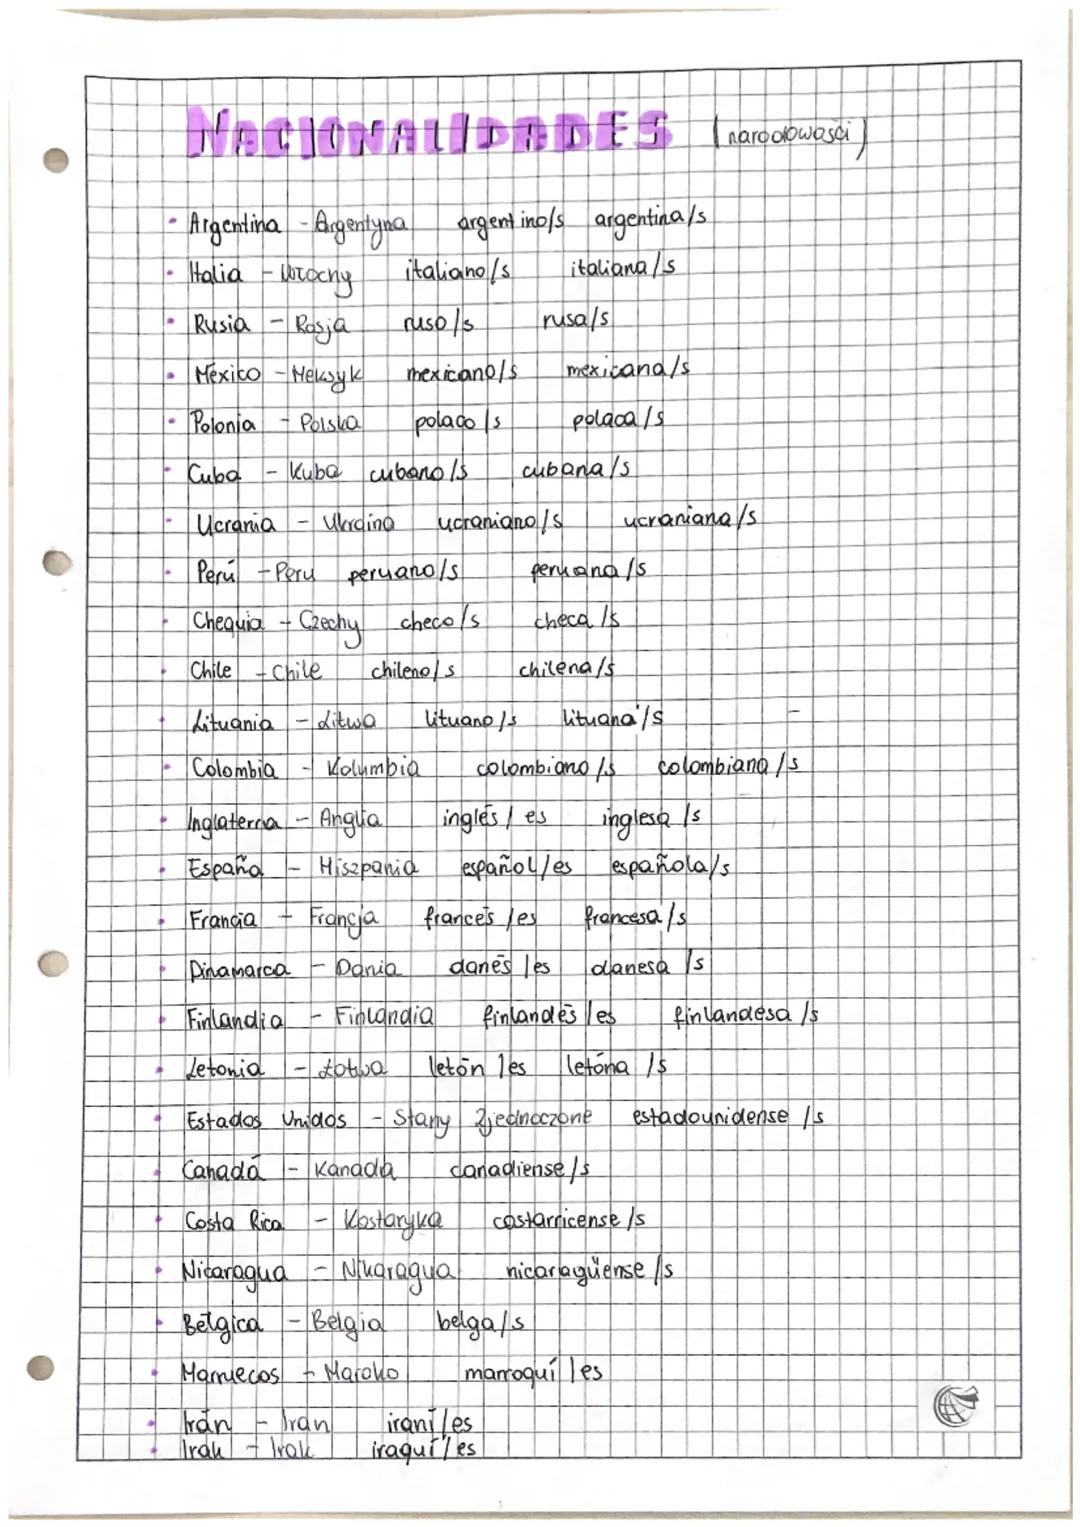 NACIONALIDADES (narodowości)
• Argentina - Argentyna argentino/s argentina/s
• Italia - Włochy italiano/s italiana/s
• Rusia - Rosja ruso/s rusa/s
• México - Meksyk mexicano/s mexicana/s
• Polonia - Polska polaco/s polaca/s
• Cuba - Kuba cubano/s cubana/s
• Ucrania - Ukraina ucraniano/s ucraniana/s
• Perú - Peru peruano/s peruana/s
• Chequia - Czechy checo/s checa/s
• Chile - Chile chileno/s chilena/s
• Lituania - Litwa lituano/s lituana/s
• Colombia - Kolumbia colombiano/s colombiana/s
• Inglaterra - Anglia inglés/es inglesa/s
• España - Hiszpania español/es española/s
• Francia - Francja francés/es francesa/s
• Dinamarca - Dania danés/es danesa/s
• Finlandia - Finlandia finlandés/es finlandesa/s
• Letonia - Łotwa letón/es letóna/s
• Estados Unidos - Stany Zjednoczone estadounidense/s
• Canadá - Kanada canadiense/s
• Costa Rica - Kostaryka costarricense/s
• Nicaragua - Nikaragua nicaragüense/s
• Bélgica - Belgia belga/s
• Marruecos - Maroko marroquí/es
• Irán - Iran iraní/es
• Irak - Irak iraquí/es